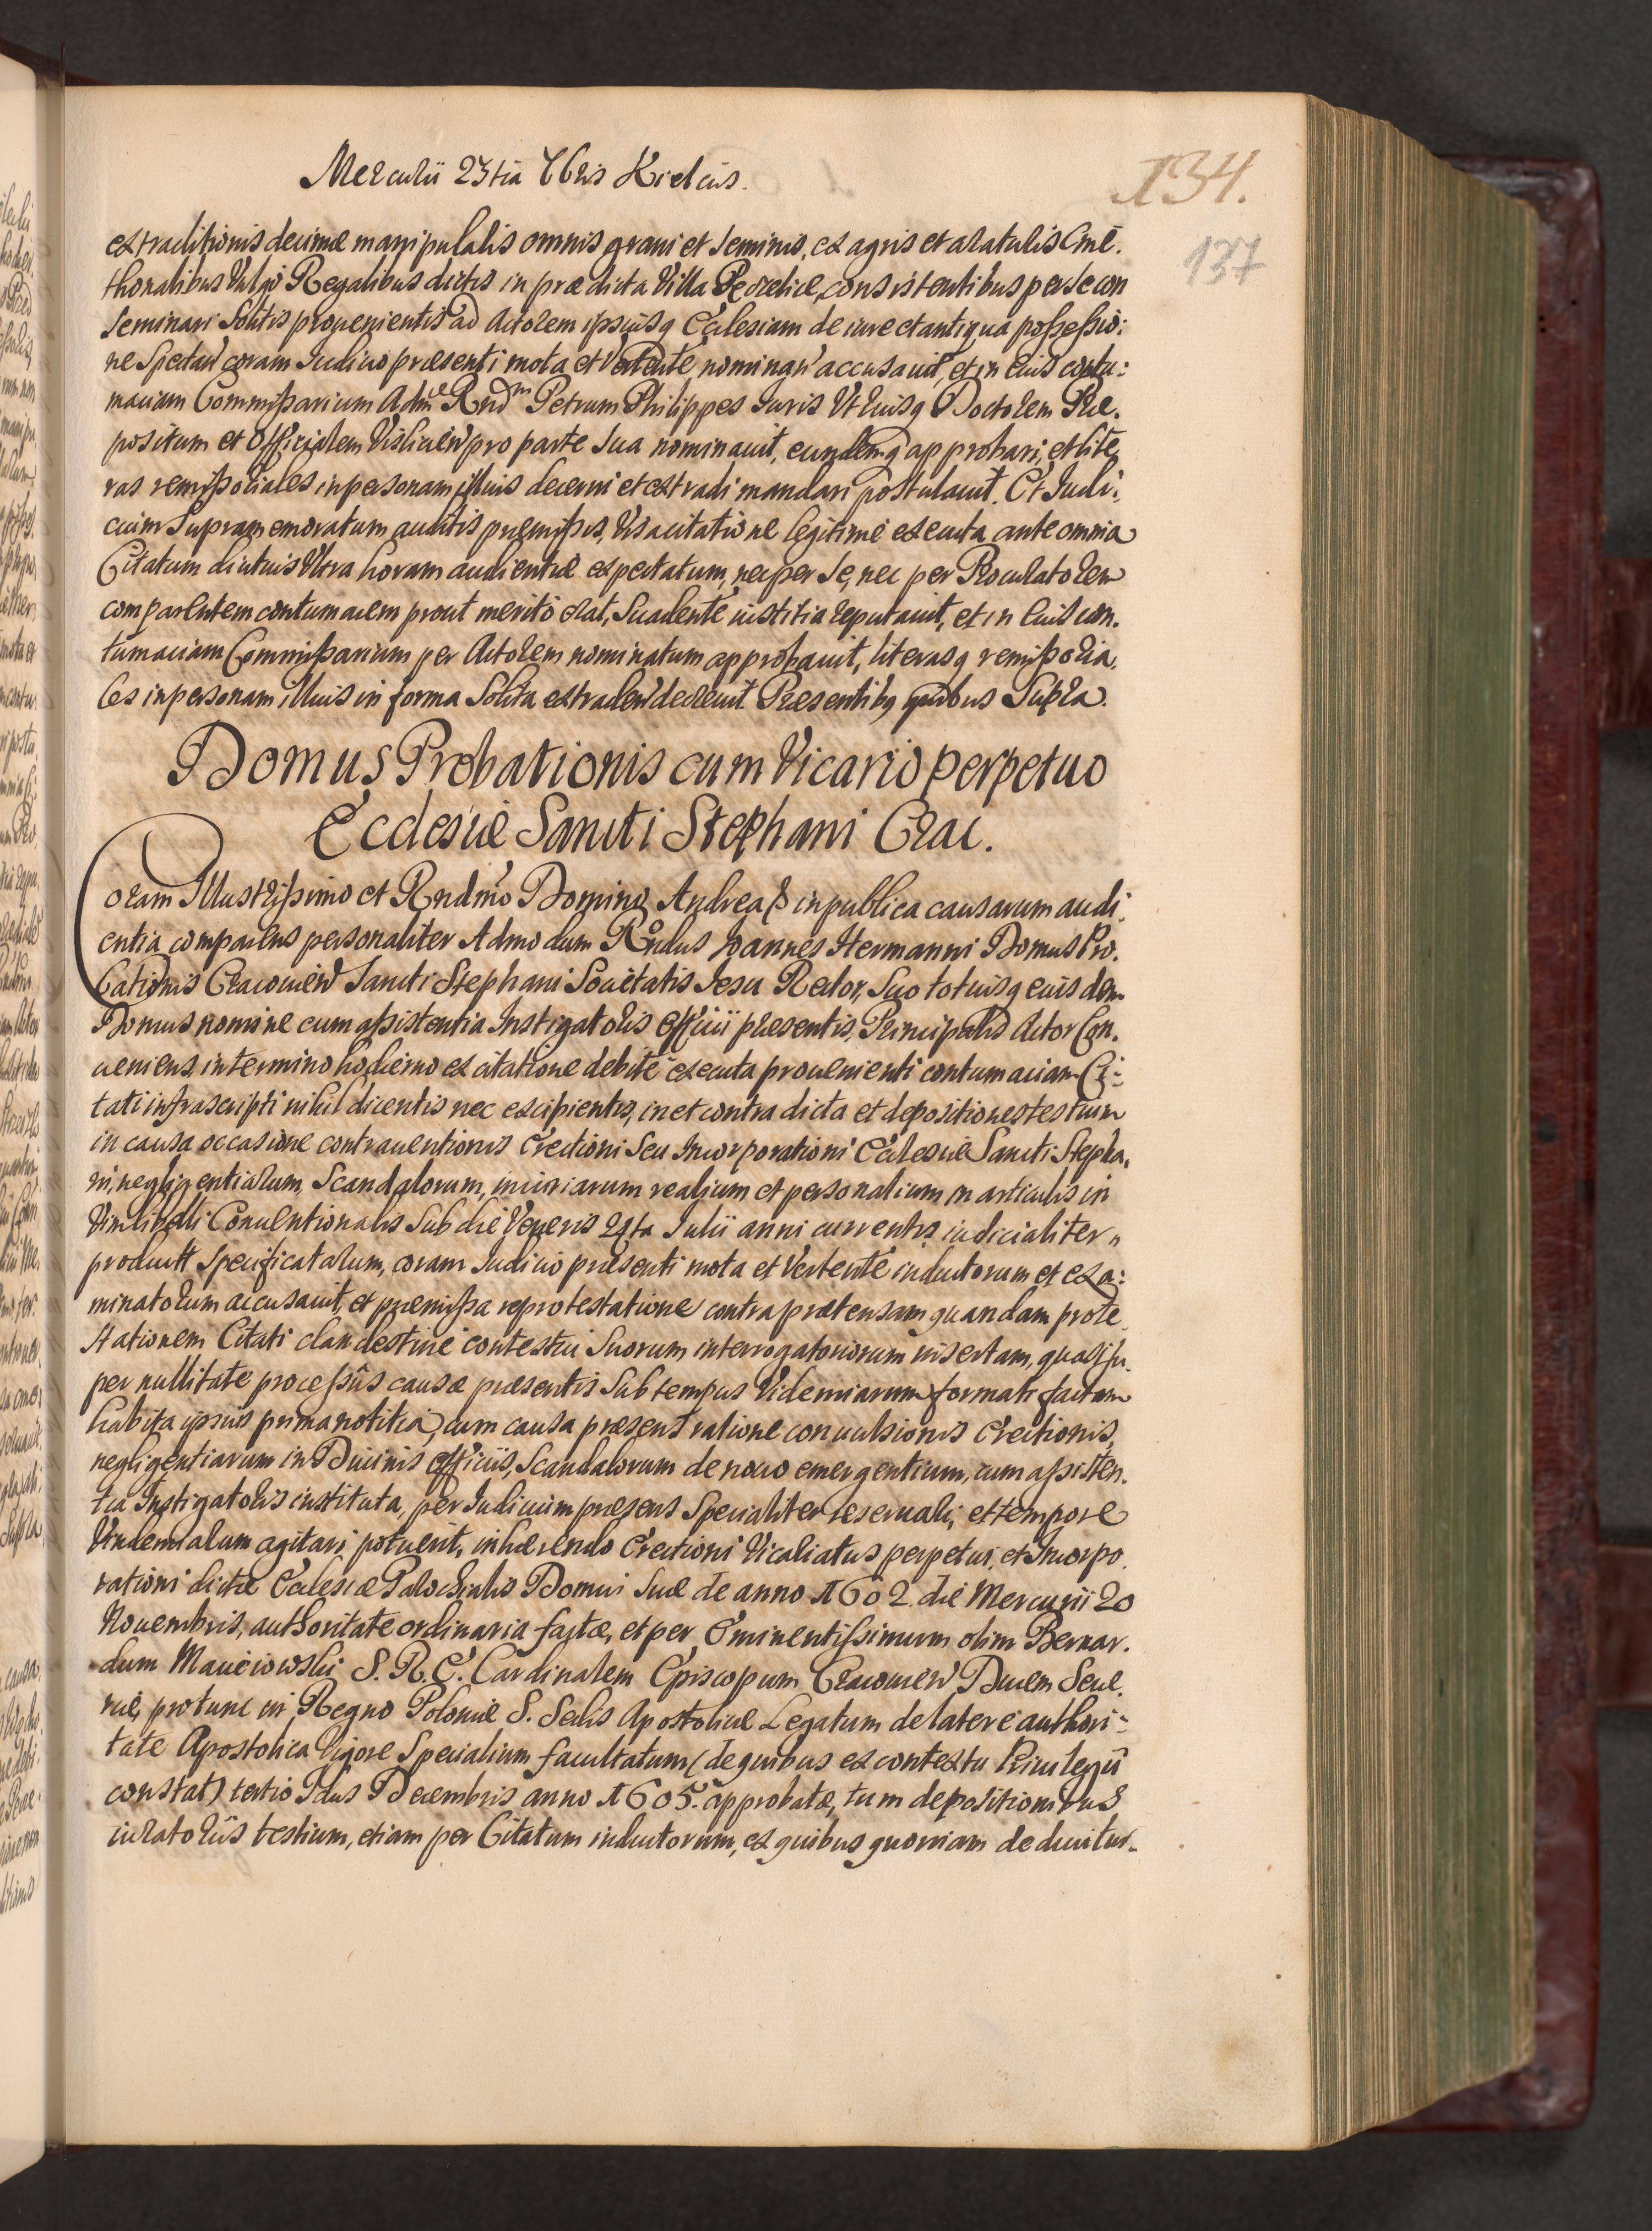 Mercurii 23tia 7bris Kielcis.
134.
137
extraditionis decimæ manipularis omnis grani et seminis, ex agris et araturis Cme.
thonalibus Vulgo Regalibus dictis in prædicta Villa consistentibus per se con
seminari solitis prouenientis ad Actorem ipsiusq Ecclesiam de iure et antiqua possessio:
ne spectan coram Iudicio præsenti mota et Vertente nominari accusauit, et in Eius contu:
maciam Commissarium Admdu Rndm Petrum Philippes Iuris Vtriusq Doctorem Præ.
positum et Officialem Visliciens pro parte sua nominauit, eundemq approbari, et lite
ras remissoriales in personam illius decerni et extradi mandari postulauit. Et Iudi:
cium supramemoratum auditis præmissis, Visa citatione legitime executa ante omnia
Citatum diutius Vltra horam audientiæ expectatum, nec per se, nec per Procuratorem
comparentem contumacem prout merito erat, suadente iustitia reputauit, et in Eius con.
tumaciam Commissarium per Actorem nominatum approbauit, literasq remissoria.
les in personam illius in forma solita extraden decreuit Præsentibq quibus supra.
Domus Probationis cum Vicario perpetuo
Ecclesiæ Sancti Stephani Crac.
Coram Illustrissimo et Rndmo Domino Andrea & in publica causarum audi.
entia comparens personaliter Admodum Rndus Ioannes Hermanni Domus Pro.
bationis Cracouien Sancti Stephani Societatis Iesu Rector, suo totiusq eiusdem
Domus nomine cum assistentia Instigatoris officii præsentis, Principalis Actor Con.
ueniens, in termino hodierno ex citatione debite executa prouenienti contumaciam Ci:
tati infrascripti nihil dicentis nec excipientis, in et contra dicta et depositiones testium
in causa occasione contrauentionis Erectioni seu Incorporationi Ecclesiæ Sancti Stepha.
ni, negligentiarum, Scandalorum, iniuriarum realium et personalium in articulis in
Vim libelli Conuentionalis sub die Veneris 24ta Iulii anni currentis iudicialiter
product specificatarum, coram Iudicio præsenti mota et Vertente inductorum et exa:
minatorum accusauit, et præmissa reprotestatione contra prætensam quandam prote
stationem Citati clandestine contextui suorum interrogatoriorum insertam, quasi su.
per nullitate processûs causæ præsentis sub tempus Videmiarum formati factam
habita ipsius prima notitia, cum causa præsens ratione conuulsionis Erectionis,
negligentiarum in Diuinis officiis, Scandalorum de nouo emergentium, cum assisten.
tia Instigatoris instituta, per Iudicium præsens specialiter reseruari, et tempore
Vindemiarum agitari potuerit, inhærendo Erectioni Vicariatus perpetui, et Incorpo.
rationi dictæ Ecclesiæ Parochialis Domui suæ de anno 1602. die Mercurii 20
Nouembris, authoritate ordinaria factæ, et per Eminentissimum olim Bernar.
dum Macieiowski S. R. E. Cardinalem Episcopum Cracouien Ducem Seue.
riæ, protunc in Regno Poloniæ S. Sedis Apostolicæ Legatum de latere authori:
tate Apostolica Vigore specialium facultatum (de quibus ex contextu Priuilegii
constat) tertio Idus Decembris anno 1605. approbatæ, tum depositionibus
iuratoriis testium, etiam per Citatum inductorum, ex quibus quoniam deducitur